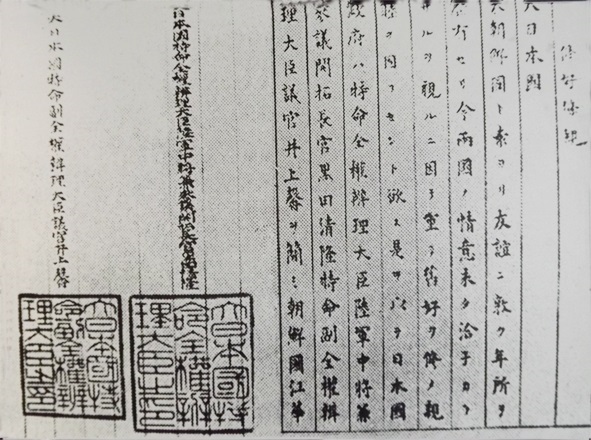 修好條規
大日本國
大朝鮮國ト素ヨリ友誼ニ敦ク年所ヲ
歴有セリ今兩國ノ情意未タ洽子カラ
サルヲ視ルニ因テ重テ舊好ヲ修メ親
睦ヲ固フセント欲ス是ヲ以テ日本國
政府ハ特命全權辨理大臣陸軍中將兼
參議開拓長官黒田清隆特命副全權辨
理大臣議官井上馨ヲ簡ミ朝鮮國江華
大日本國特命全權辨理大臣陸軍中將兼參議開拓長官黒田清隆
大日本國特
命全權辨
理大臣之印
大日本國特命副全權辨理大臣議官井上馨
大日本國特
命副全權辨
理大臣章